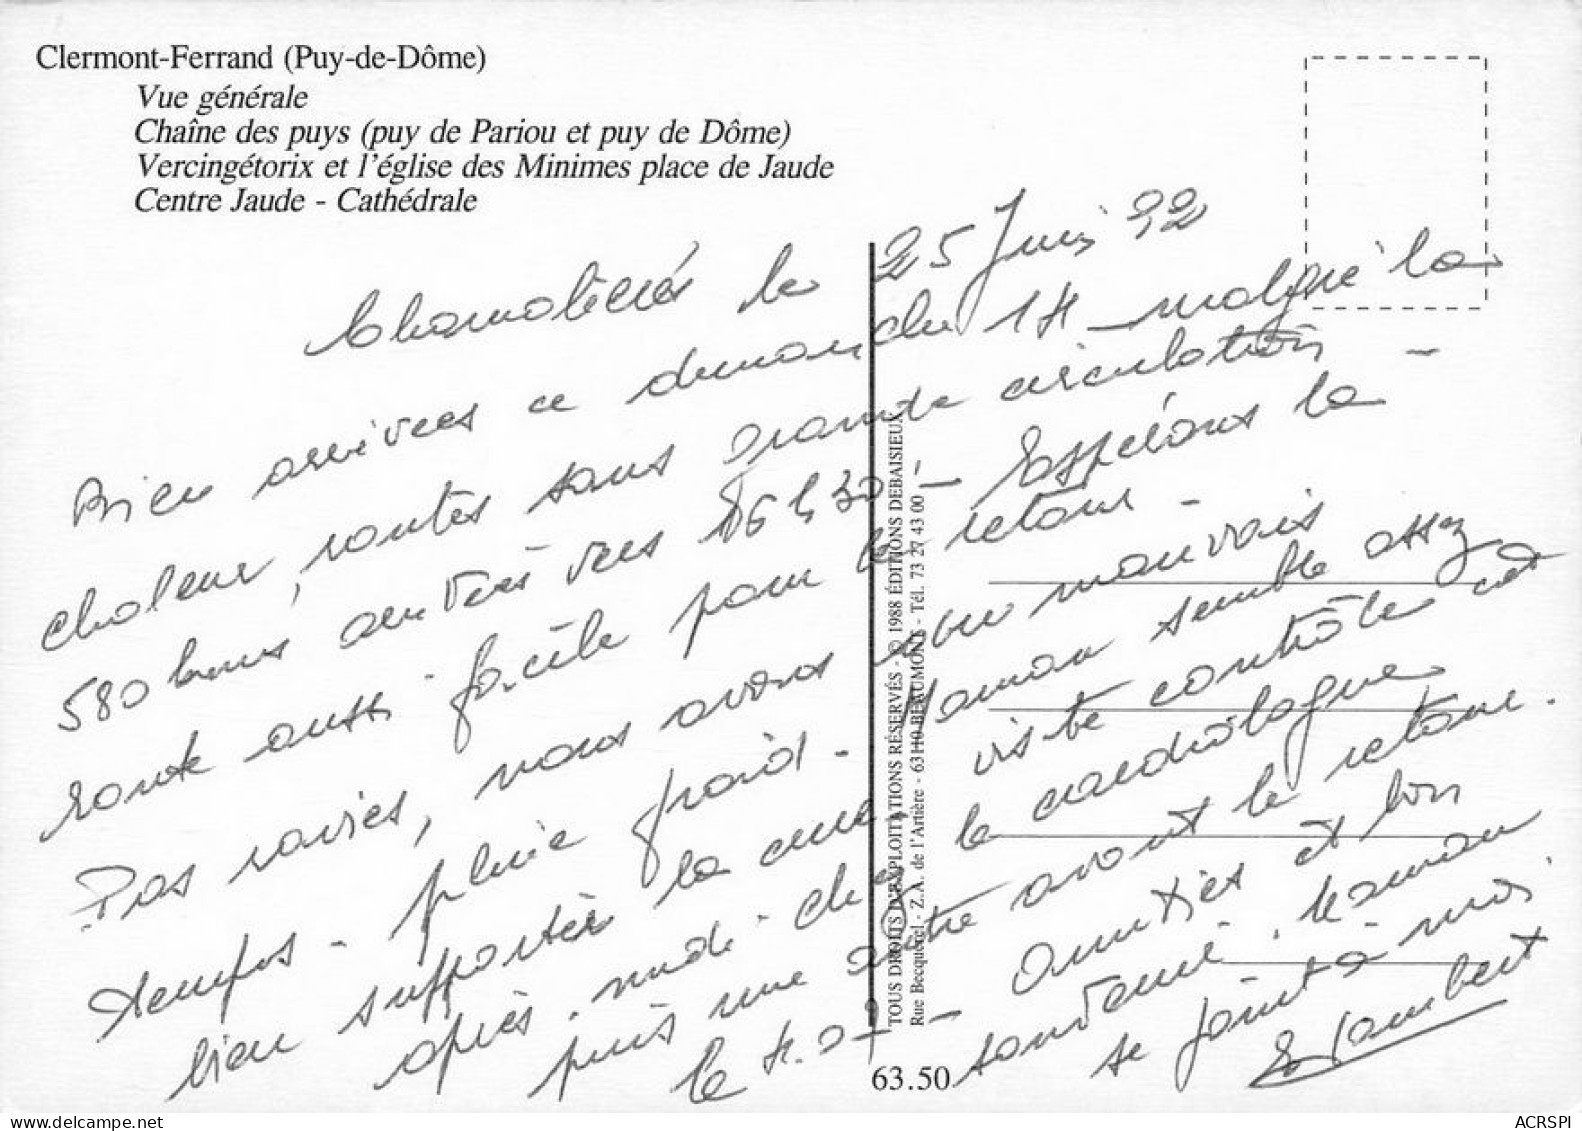 Clermont-Ferrand (Puy-de-Dôme)
Vue générale
Chaîne des puys (puy de Pariou et puy de Dôme)
Vercingétorix et l'église des Minimes place de Jaude
Centre Jaude - Cathédrale
le 25 Juin 92
Bien arrivées ce dimanche 14 malgré la
chaleur, routes sans grande circulation -
580 kms arrivées vers 16 h 30 - Espérons la
route aussi facile pour le retour -
Pas ravies, nous avons eu mauvais
temps - pluie froid - Maman semble assez
bien supporter la cure visite contrôle cet
après-midi chez le cardiologue
puis une autre avant le retour.
le 4.07 - Amitiés et bon
souvenir, Maman
se joint à moi.
Lambert
TOUS DROITS D'EXPLOITATIONS RÉSERVÉS - © 1988 ÉDITIONS DEBAISIEUX
Rue Becquerel - Z.A. de l'Artière - 63110 BEAUMONT - Tél. 73 27 43 00
63.50
ACRSPI